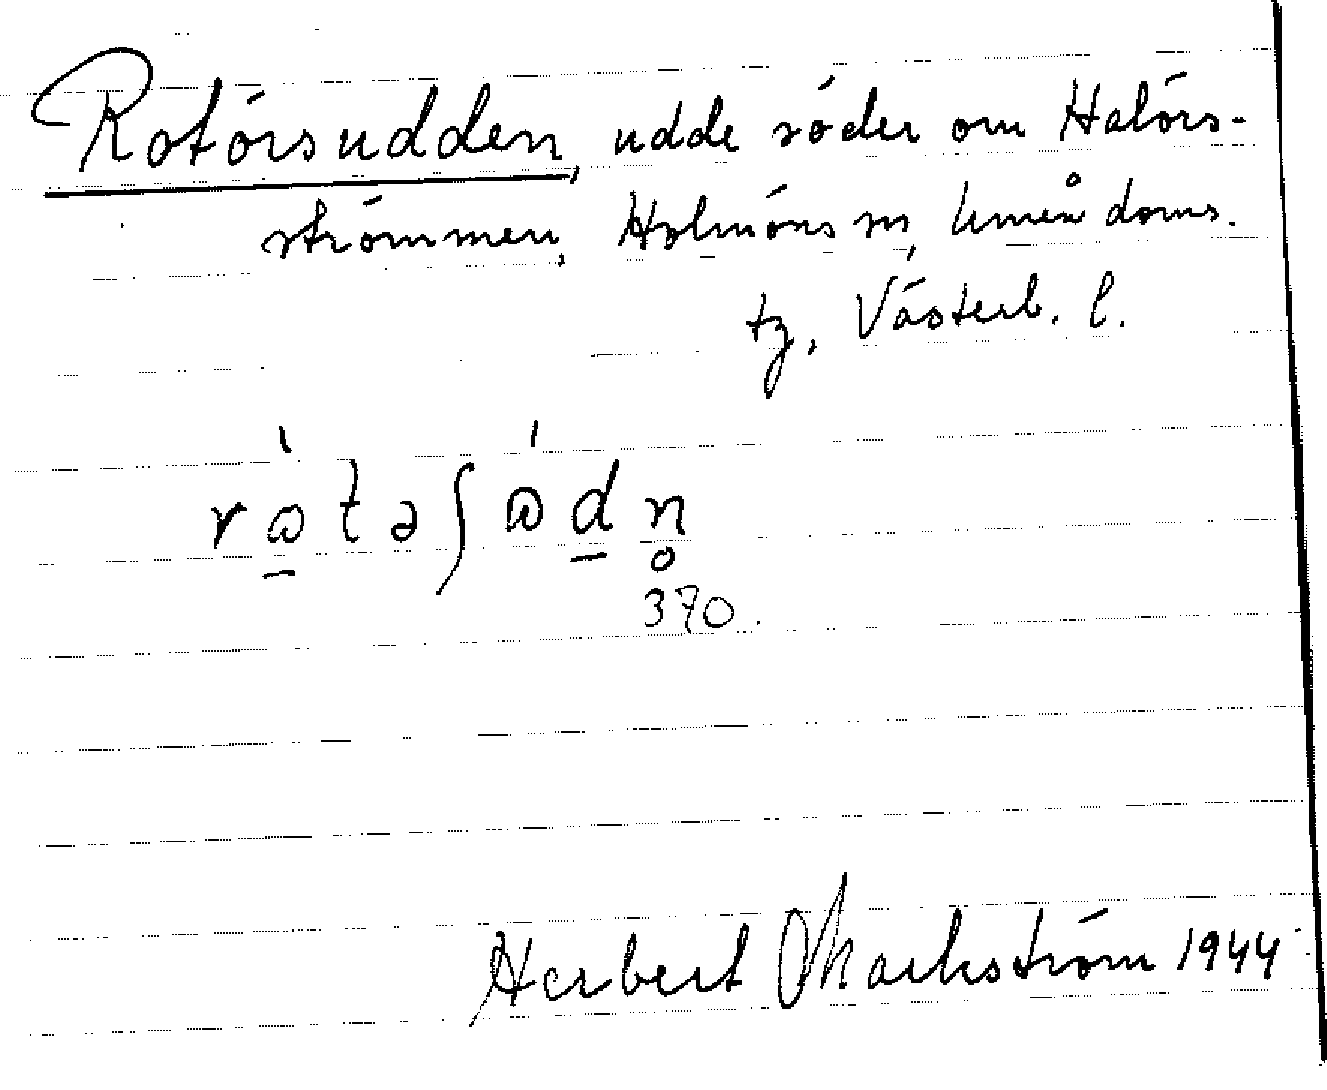 Rotörsudden, udde söder om Halörs-
strömmen, Holmöns sn, Umeå doms.
tg, Västerb. l.
370
Herbert Markström 1944